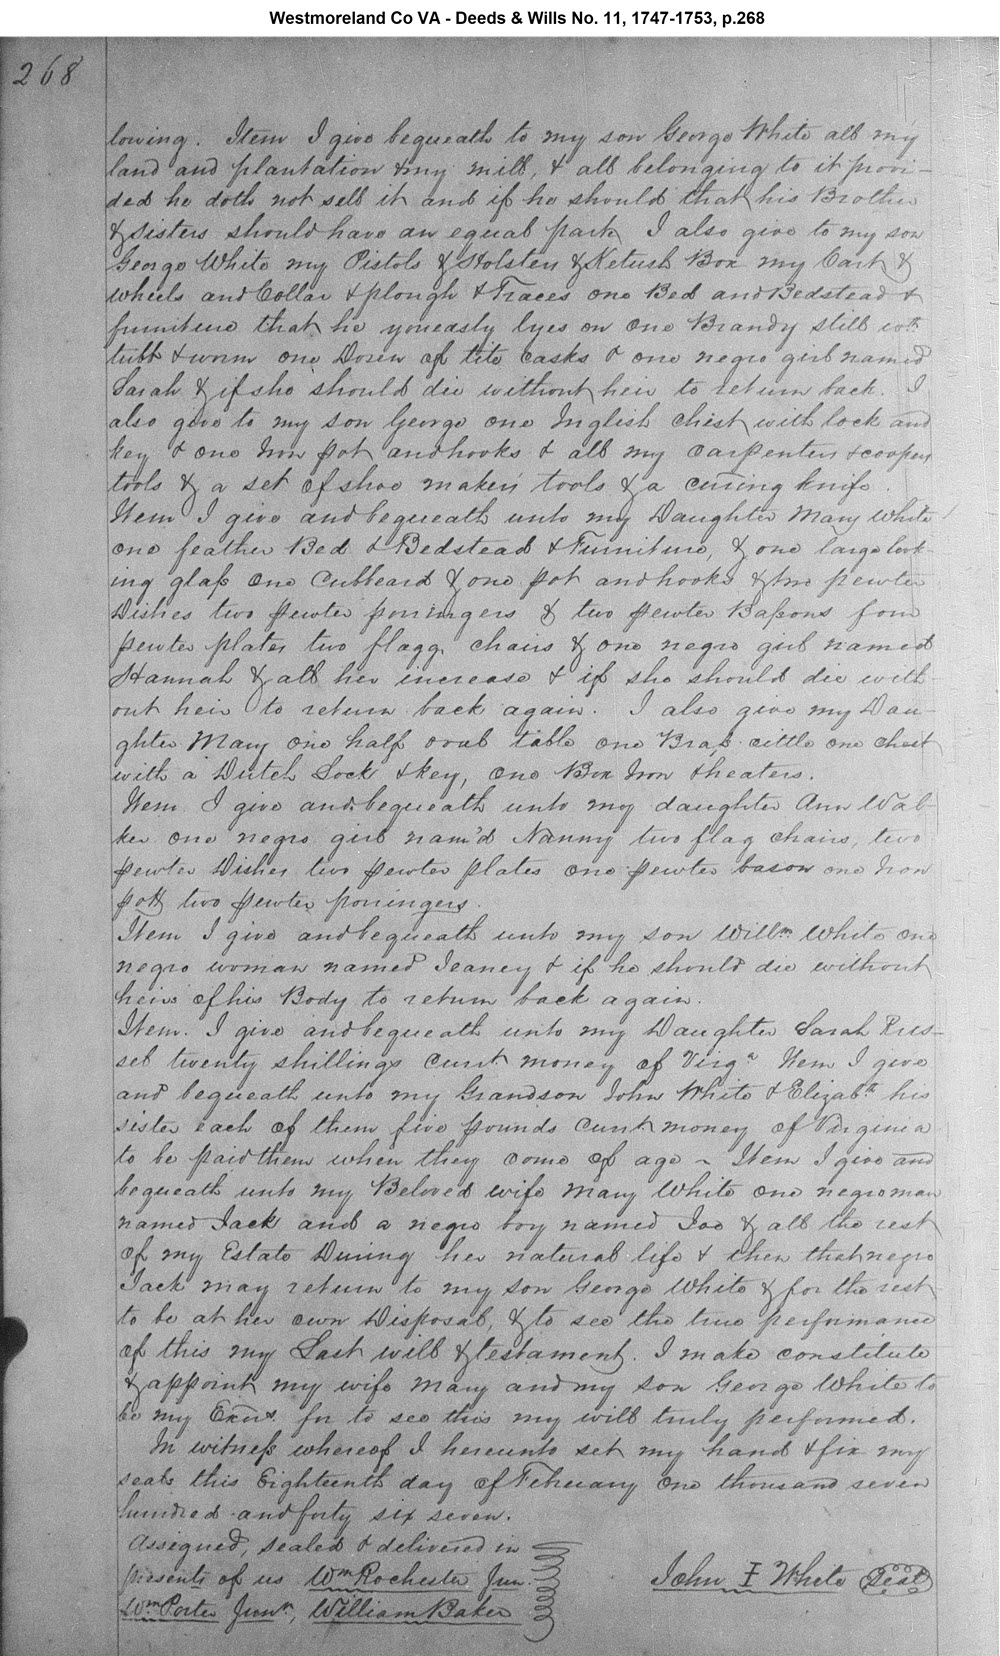 Westmoreland Co VA - Deeds & Wills No. 11, 1747-1753, p.268
268
lowing. Item I give bequeath to my son George White all my
land and plantation & my mill, & all belonging to it provi-
ded he doth not sell it and if he should that his Brother
& sisters should have an equal part I also give to my son
George White my Pistols & Holsters & Ketush Box my Cart &
wheels and Collar & plough & Traces one Bed and Bedstead &
furniture that he youeasly lyes on one Brandy still wth
tubb & worm one Dozen of tite casks & one negro girl named
Sarah & if she should die without heir to return back. I
also give to my son George one Inglish chest with lock and
key & one Iron pot and hooks & all my carpenters & coopers
tools & a set of shoe makers tools & a curing knife.
Item I give and bequeath unto my Daughter Mary White
one feather Bed & Bedstead & Furniture, & one large look-
ing glass one Cubbeard & one pot and hooks & two pewter
Dishes two pewter porringers & two pewter Basons four
pewter plates two flagg chairs & one negro girl named
Hannah & all her increase & if she should die with-
out heir to return back again. I also give my Dau-
ghter Mary one half oval table one Brass cittle one chest
with a Dutch Lock & key, one Box Iron & heaters.
Item I give and bequeath unto my daughter Ann Wal-
ker one negro girl nam'd Nanny two flag chairs, two
pewter Dishes two pewter plates one pewter bason one Iron
pott two pewter porringers.
Item I give and bequeath unto my son Willm White one
negro woman named Jeaney & if he should die without
heirs of his Body to return back again.
Item. I give and bequeath unto my Daughter Sarah Rus-
sel twenty shillings curt money of Virga Item I give
and bequeath unto my Grandson John White & Elizabth his
sister each of them five pounds curt money of Virginia
to be paid them when they come of age ~ Item I give and
bequeath unto my Beloved wife Mary White one negro man
named Jack and a negro boy named Joe & all the rest
of my Estate During her natural life & then that negro
Jack may return to my son George White & for the rest
to be at her own Disposal, & to see the true performance
of this my Last will & testament. I make constitute
& appoint my wife Mary and my son George White to
be my Exors. for to see this my will truly performed.
In witness whereof I hereunto set my hand & fix my
seale this Eighteenth day of February one thousand seven
hundred and forty six seven.
Assigned, sealed & delivered in
presents of us Wm Rochester Jun.
Wm Porter Junr, William Baker
John I White Seal